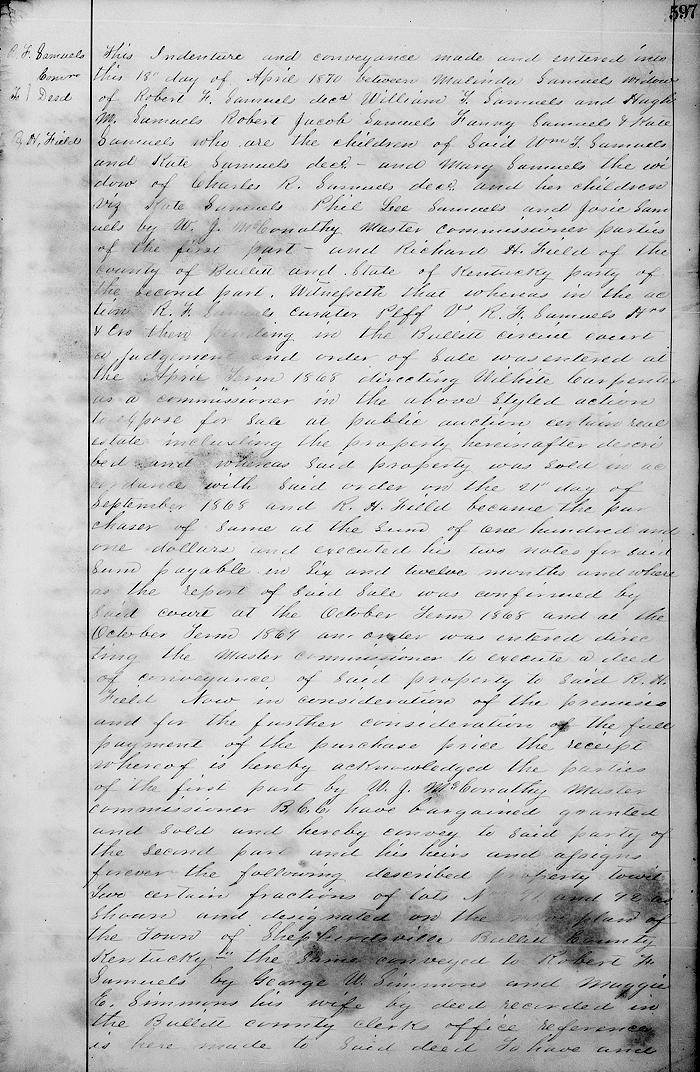 597
R. F. Samuels
Comr
To } Deed
R. H. Field
This Indenture and conveyance made and entered into
this 18" day of April 1870 between Malinda Samuels widow
of Robert F. Samuels decd William T. Samuels and Hugh
M. Samuels Robert Jacob Samuels Fanny Samuels & Kate
Samuels who are the children of Said Wm T. Samuels
and Kate Samuels decd - and Mary Samuels the wi
dow of Charles R. Samuels decd. and her children
viz Kate Samuels Phil Lee Samuels and Josie Sam
uels by W. J. McConathy Master commissioner parties
of the first part - and Richard H. Field of the
county of Bullitt and State of Kentucky party of
the second part. Witnesseth that whereas in the ac
tion R. F. Samuels curater Plff Vs R. F. Samuels Hrs
& Crs then pending in the Bullitt circuit court
a judgement and order of Sale was entered at
the April Term 1868 directing Wilhite Carpenter
as a commissioner in the above styled action
to expose for Sale at public auction certain real
estate including the property hereinafter descri
bed and whereas Said property was sold in ac
cordance with Said order on the 21st day of
September 1868 and R. H. Field became the pur
chaser of Same at the Sum of one hundred and
one dollars and executed his two notes for said
Sum payable in Six and twelve months and where
as the report of Said Sale was confirmed by
Said court at the October Term 1868 and at the
October Term 1869 an order was entered direc
ting the Master commissioner to execute a deed
of conveyance of Said property to Said R. H.
Field Now in consideration of the premises
and for the further consideration of the full
payment of the purchase price the receipt
whereof is hereby acknowledged the parties
of the first part by W. J. McConathy Master
commissioner B.C.C. have bargained granted
and Sold and hereby convey to Said party of
the Second part and his heirs and assigns
forever the following described property towit
Two certain fractions of lots and 72 as
Shown and designated on the plan of
the Town of Shepherdsville Bullitt County
Kentucky the Same conveyed to Robert F.
Samuels by George W. Simmons and Maggie
E. Simmons his wife by deed recorded in
the Bullitt county clerks office reference
is here made to Said deed To have and